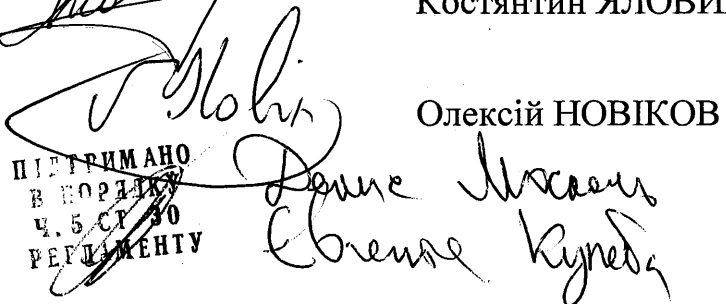 Костянтин ЯЛОВИ
Новік
Олексій НОВІКОВ
ПІДТРИМАНО
В ПОРЯДКУ
Ч. 5 СТ 30
РЕГЛАМЕНТУ
Денис
Євгенія Кулеба